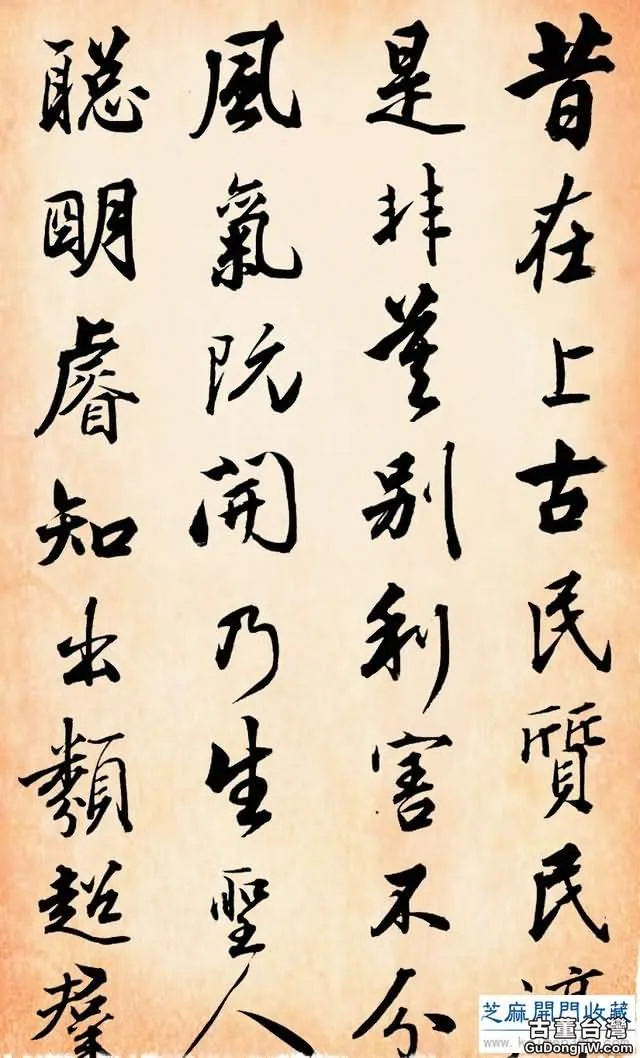 昔在上古民質民
是非莫別利害不分
風氣既開乃生聖人
聰明睿知出類超羣
芝麻開門收藏
古董台灣
GuDongTW.com